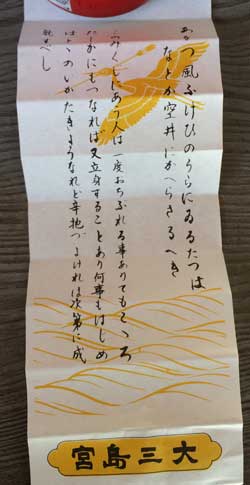 あまつ風ふけひのうらにゐるたつは
なとか雲井にかへらさるへき
みくじにあう人は一度おちぶれる事ありてもこゝろ
たしかにもつなれば又立身することあり何事もはじめ
はとゝのいがたきようなれど辛抱づよければ次第に成
就すべし
大三島宮